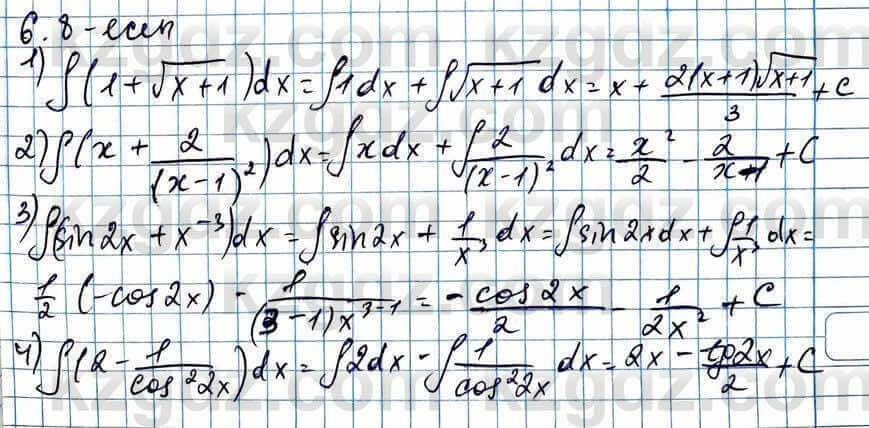 6.8-есеп
1) ∫(1+√(x+1))dx = ∫1dx + ∫√(x+1) dx = x + 2(x+1)√(x+1)/3 + C
2) ∫(x + 2/(x-1)²)dx = ∫xdx + ∫2/(x-1)² dx = x²/2 - 2/(x-1) + C
3) ∫(sin2x + x⁻³)dx = ∫sin2x + 1/x³ dx = ∫sin2xdx + ∫1/x³ dx =
1/2 (-cos2x) - 1/((3-1)x³⁻¹) = -cos2x/2 - 1/2x² + C
4) ∫(2 - 1/cos²2x)dx = ∫2dx - ∫1/cos²2x dx = 2x - tg2x/2 + C
kzgdz.com